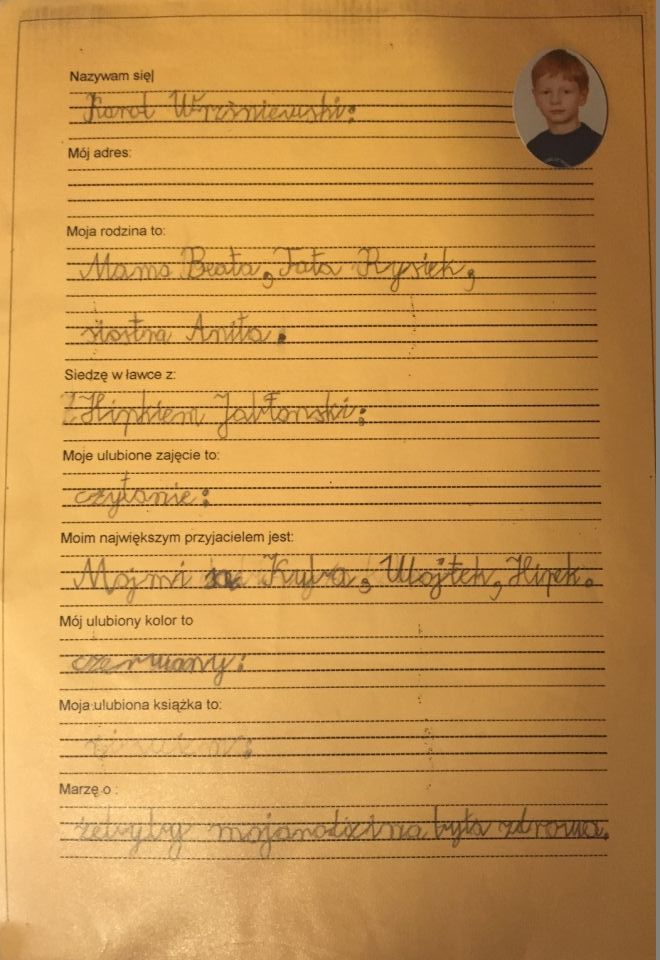 Nazywam się
Karol Wrześniewski:
Mój adres:
Moja rodzina to:
Mama Beata, Tata Rysiek,
siostra Anita.
Siedzę w ławce z:
Z Hipkiem Jabłonski:
Moje ulubione zajęcie to:
czytanie:
Moim największym przyjacielem jest:
Kuba, Wojtek, Hipek.
Mój ulubiony kolor to
czerwany:
Moja ulubiona książka to:
Marzę o :
żebyby mojarodzina była zdrowa.